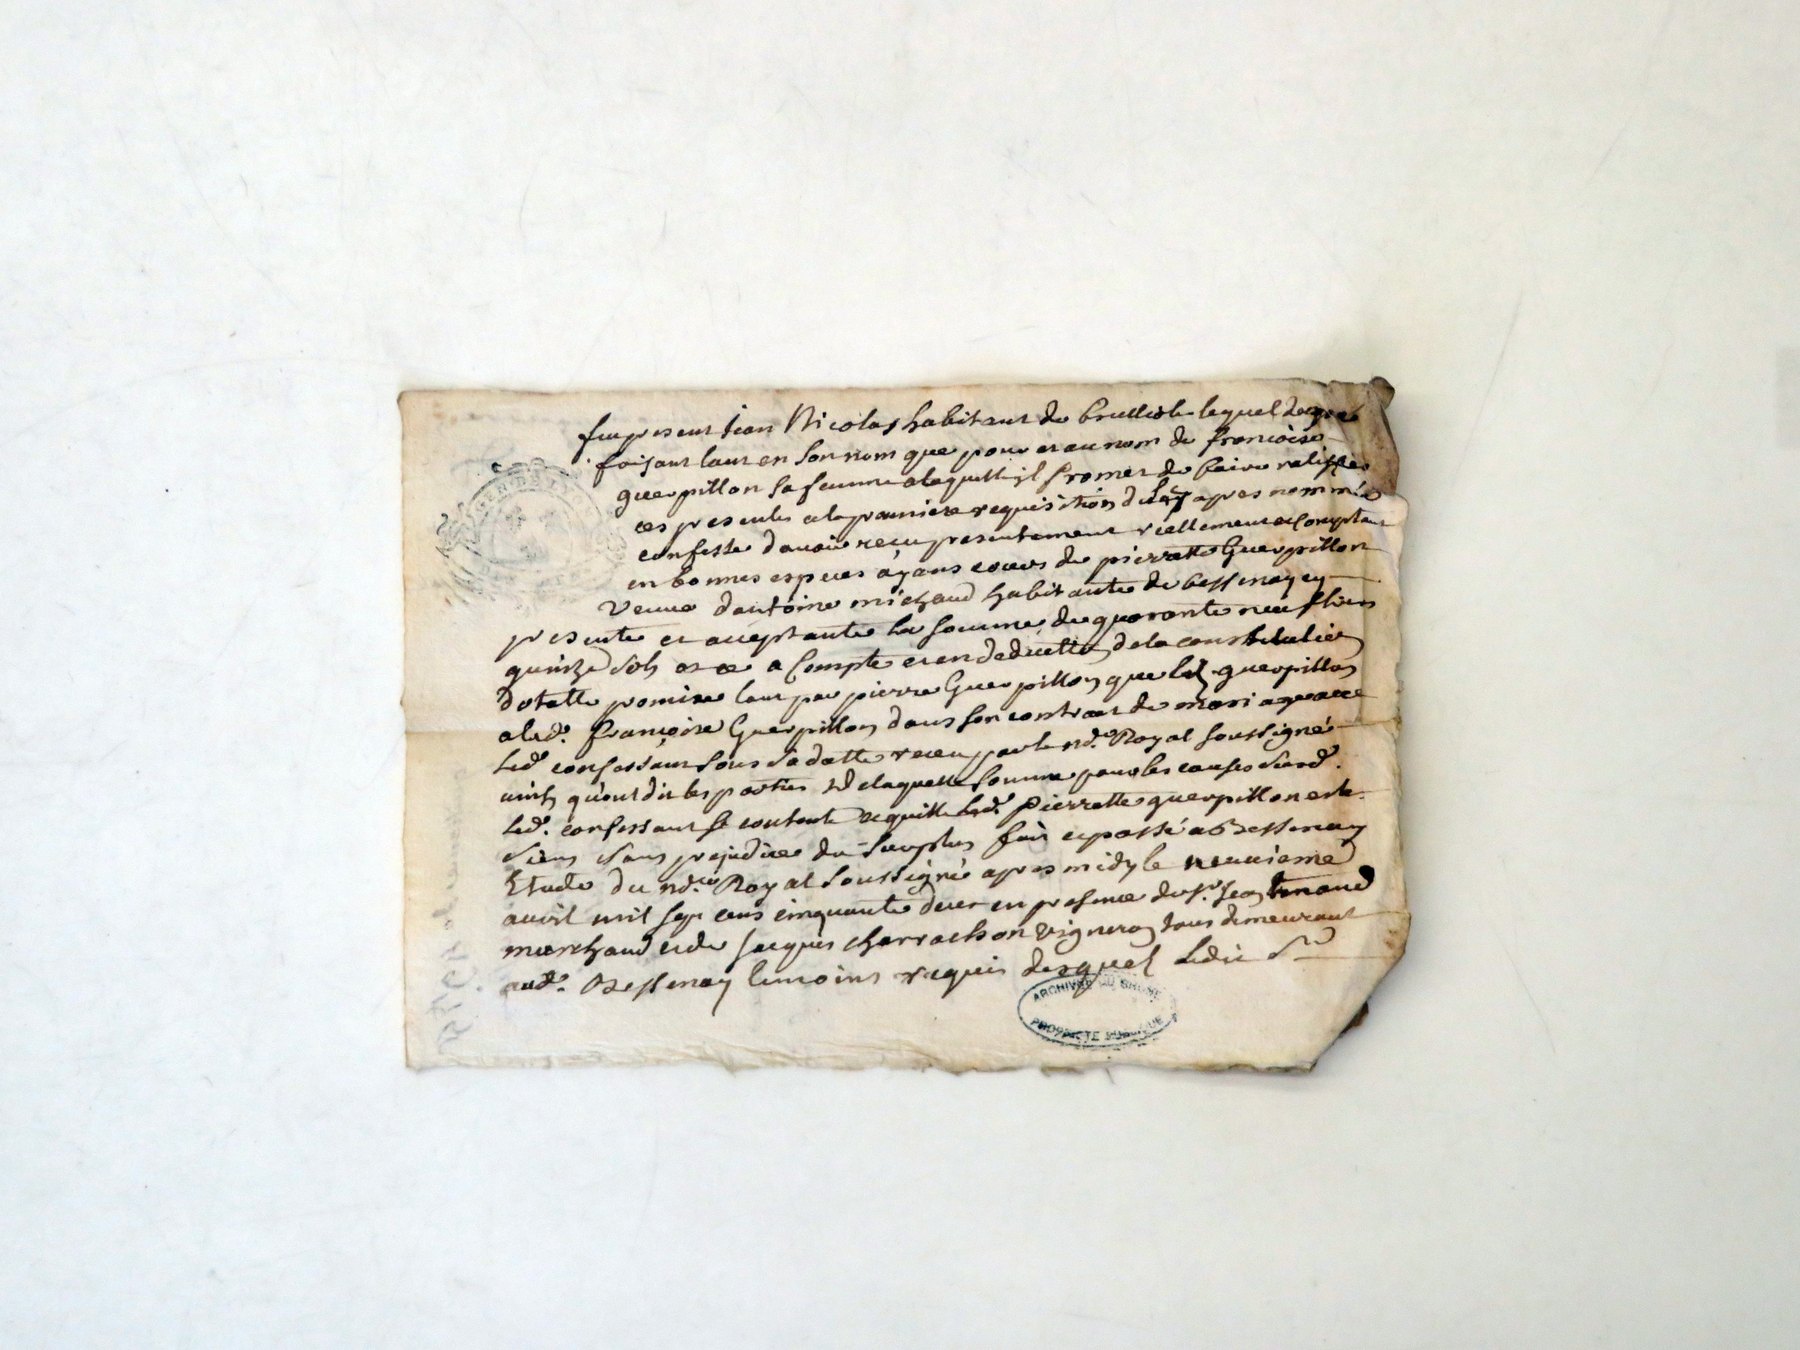 fut present Jean Nicolas habitant de brulliole lequel de gré
faisant tant en son nom que pour et au nom de francoise
guerpillon sa femme a laquelle il promet de faire ratiffier
ces presentes a la premiere requisition de la apres nommée
confesse d'avoir recu presentement reellement et comptant
en bonnes especes ayans cours de pierrette Guerpillon
veuve d'antoine michaud habitante de bessenay cy
presente et acceptante la somme de quarante neuf livres
quinze sols et ce a compte et en deduction de la constitution
dotalle promise tant par pierre Guerpillon que lad. guerpillon
a lad. françoise Guerpillon dans son contrat de mariage avec
led. confessant sous sa datte receu par le nd.re Royal soussigné
ainsy qu'ont dit les parties de laquelle somme pour les causes susd.
led. confessant se contente et quitte lad. pierrette guerpillon et les
siens sans prejudice du surplus fait et passé a Bessenay
Etude du nd.re Royal soussigné apres midy le neuvieme
avril mil sept cens cinquante deux en presence de sr. Jean
marchand et de Jacques charrachon vigneron tous demeurant
aud. Bessenay temoins requis desquel ledit Sr
ARCHIVES DU RHONE
PROPRIETE PUBLIQUE
GEN. DE LYON